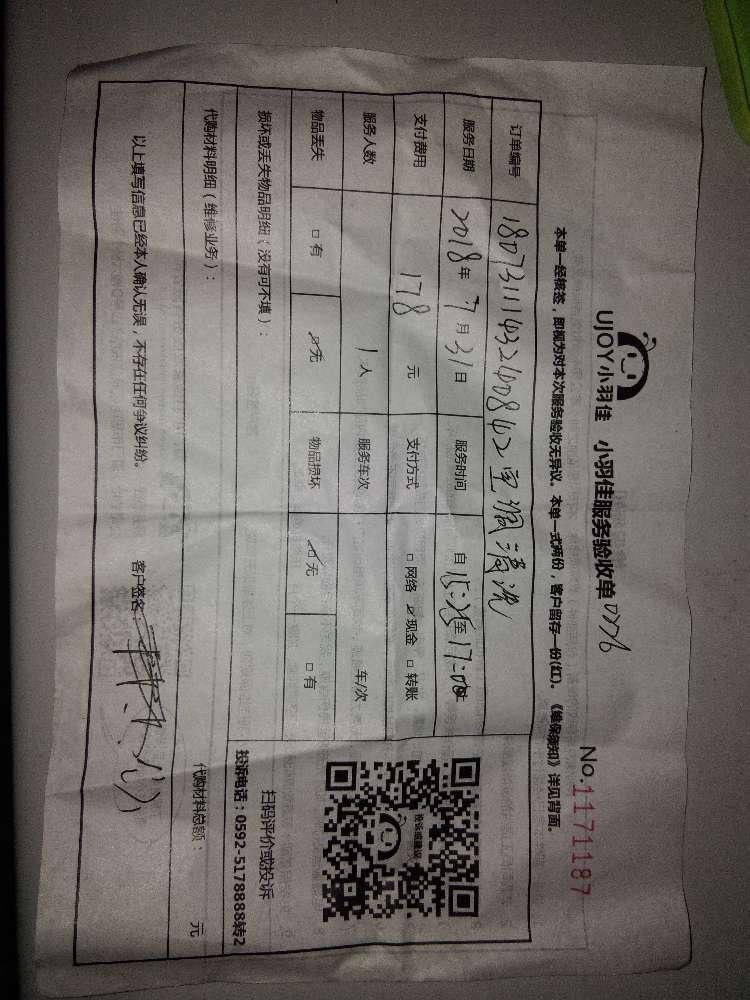 UJOY小羽佳 小羽佳服务验收单
No.1171187
本单一经核签，即视为对本次服务验收无异议。本单一式两份，客户留存一份(红)。《维保须知》详见背面。
订单编号 空调清洗
服务日期 2018年7月31日 服务时间 自15:25至17:00止
支付费用 178元 支付方式 □网络 ☑现金 □转账
服务人数 1人 服务车次 车/次
物品丢失 □有 ☑无 物品损坏 ☑无 □有
扫码评价或投诉
投诉电话：0592-5178888转2
损坏或丢失物品明细（没有可不填）：
代购材料明细（维修业务）： 代购材料总额： 元
以上填写信息已经本人确认无误，不存在任何争议纠纷。 客户签名：